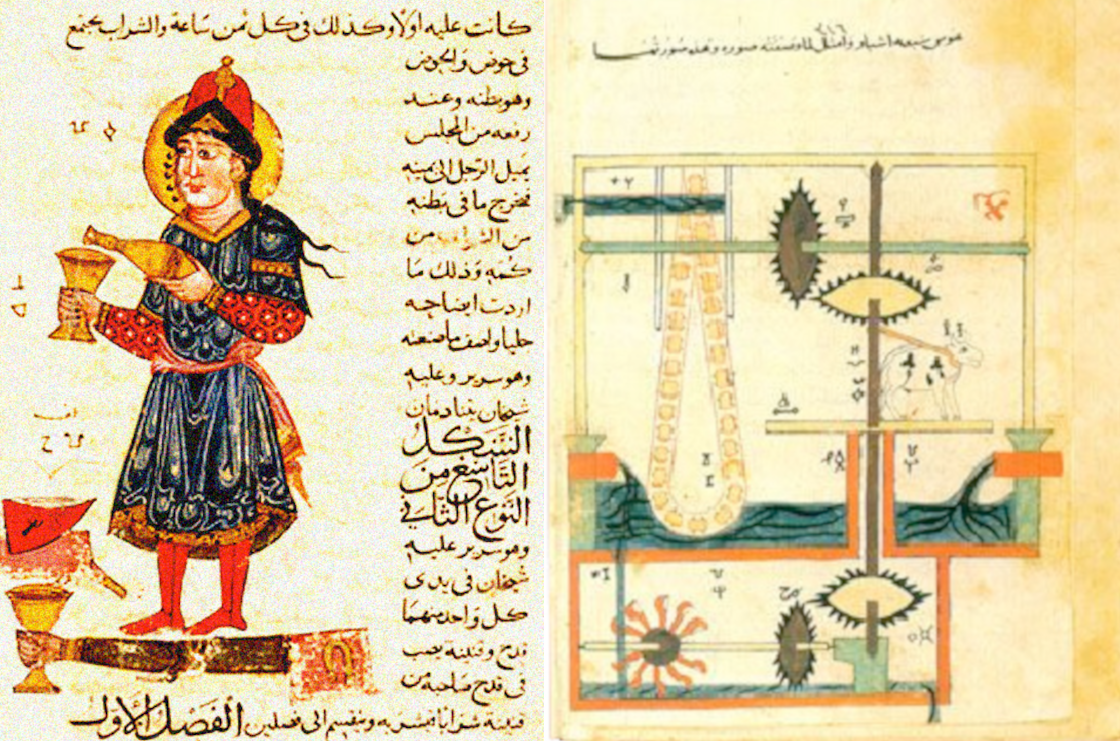 كانت عليه اولا وكذلك في كل ثمن ساعة والشراب يجتمع
في حوض والحوض
وهو بطنه وعند
رفعه من المجلس
يميل الرجل الى يمينه
فيخرج ما في بطنه
من الشراب من
كمه وذلك ما
اردت ايضاحه
جليا واصف ما صنعته
وهو سرير وعليه
شيخان يتنادمان
الشكل
التاسع من
النوع الثاني
وهو سرير عليه
شيخان في يدي
كل واحد منهما
قدح وقنينة يصب
في قدح صاحبه من
قنينة شرابا فيشربه وينقسم الى فصلين الفصل الاول
لما وصفته صوره وهذه صورتها